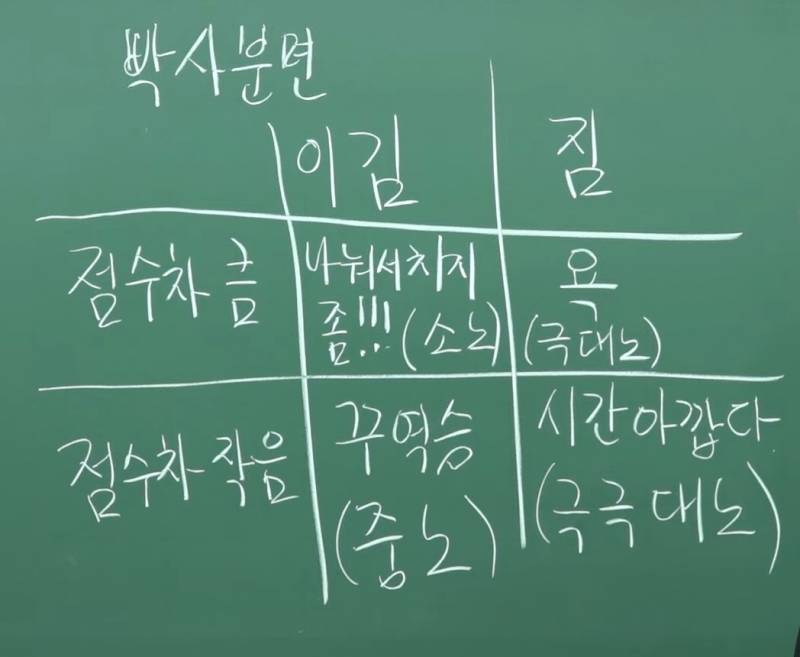 박사분면
이김 짐
점수차 금 나눠서치지 욕
좀!!! (소노) (극대노)
점수차 작음 꾸역승 시간아깝다
(중노) (극극대노)